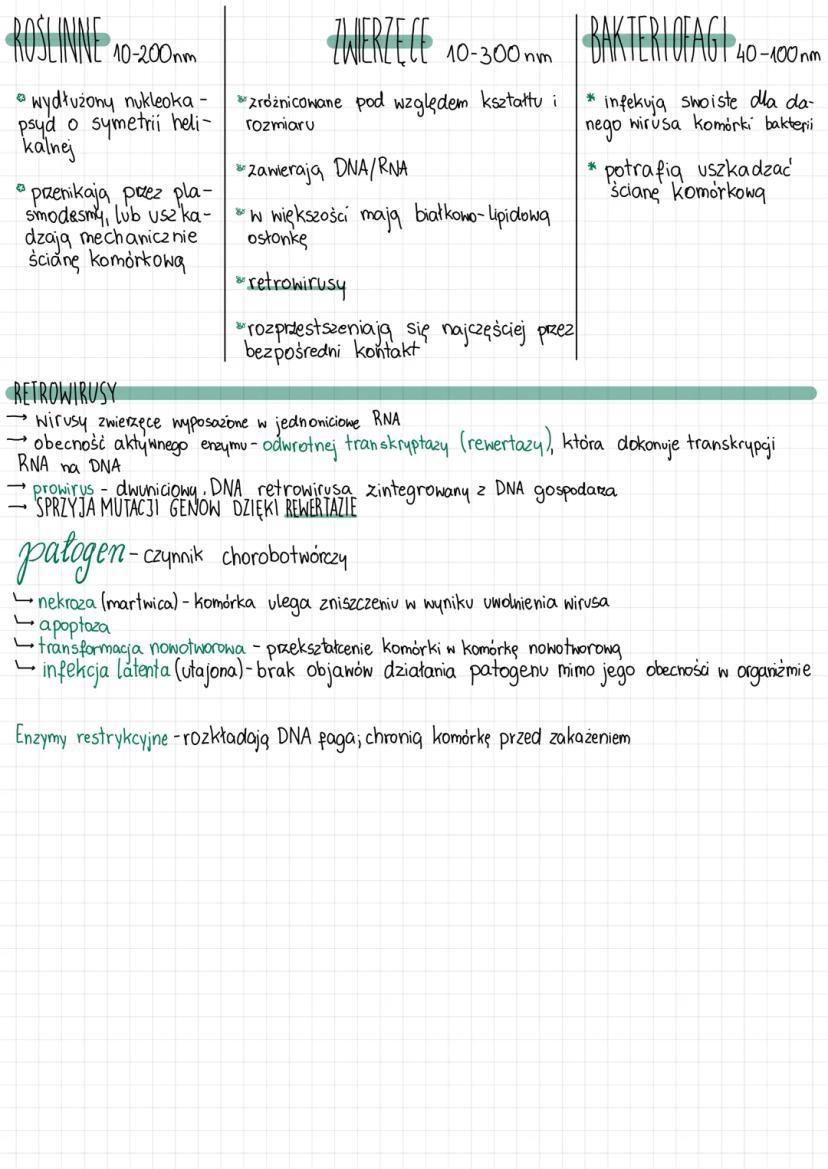 ROŚLINNE 10-200nm
wydłużony nukleoka-
psyd o symetrii heli-
kalnej
przenikają przez pla-
smodesmy, lub uszka-
dzają mechanicznie
ścianę komórkową
ZWIERZĘCE 10-300nm
zróżnicowane pod względem kształtu i
rozmiaru
zawierają DNA/RNA
w większości mają białkowo-lipidową
osłonkę
retrowirusy
rozprzestszeniają się najczęściej przez
bezpośredni kontakt
BAKTERIOFAGI 40-100nm
* infekują swoiste dla da-
nego wirusa komórki bakterii
* potrafią uszkadzać
ścianę komórkową
RETROWIRUSY
→ wirusy zwierzęce wyposażone w jednoniciowe RNA
→ obecność aktywnego enzymu - odwrotnej transkryptazy (rewertazy), która dokonuje transkrypcji
RNA na DNA
→ prowirus - dwuniciowy DNA retrowirusa zintegrowany z DNA gospodarza
→ SPRZYJA MUTACJI GENÓW DZIĘKI REWERTAZIE
patogen - czynnik chorobotwórczy
↳ nekroza (martwica) - komórka ulega zniszczeniu w wyniku uwolnienia wirusa
↳ apoptoza
↳ transformacja nowotworowa - przekształcenie komórki w komórkę nowotworową
↳ infekcja latenta (utajona) - brak objawów działania patogenu mimo jego obecności w organizmie
Enzymy restrykcyjne - rozkładają DNA faga; chronią komórkę przed zakażeniem